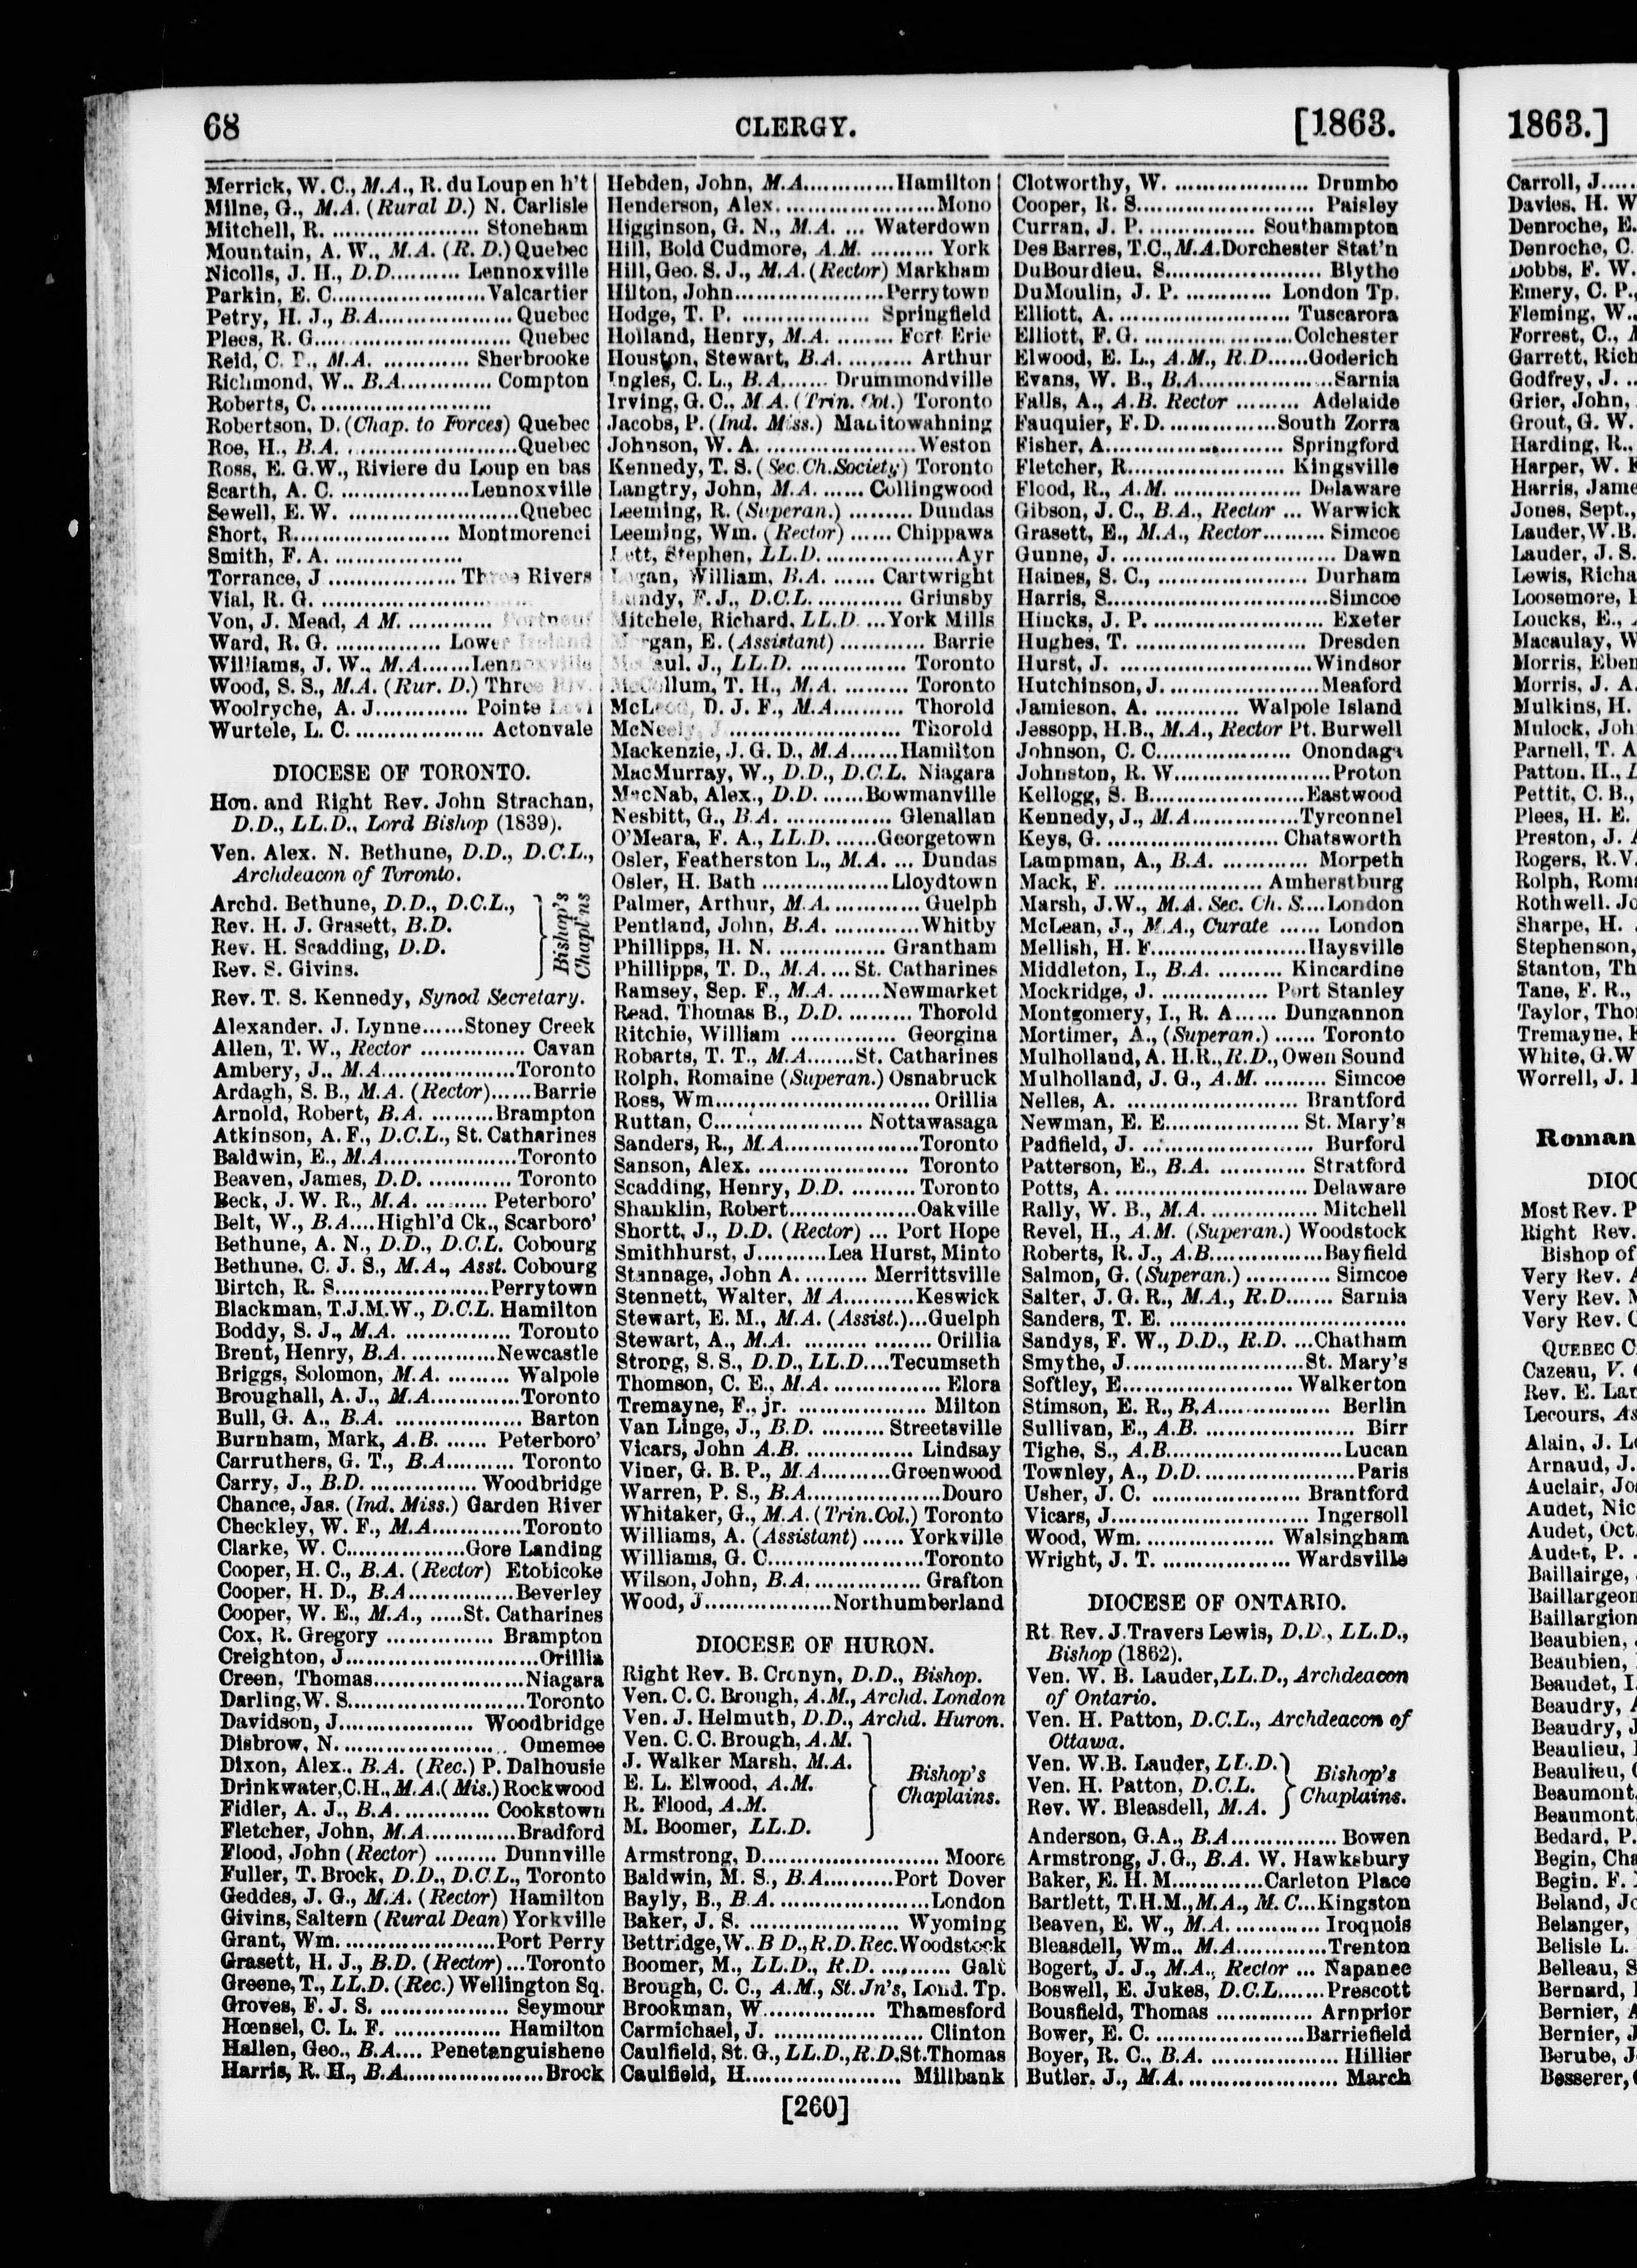 68 CLERGY. [1863.
Merrick, W. C., M.A., R. du Loup en h't
Milne, G., M.A. (Rural D.) N. Carlisle
Mitchell, R. .................... Stoneham
Mountain, A. W., M.A. (R. D.) Quebec
Nicolls, J. H., D.D.......... Lennoxville
Parkin, E. C......................Valcartier
Petry, H. J., B.A................... Quebec
Plees, R. G............................ Quebec
Reid, C. P., M.A. ............ Sherbrooke
Richmond, W.. B.A............. Compton
Roberts, C. .........................
Robertson, D. (Chap. to Forces) Quebec
Roe, H., B.A. .........................Quebec
Ross, E. G.W., Riviere du Loup en bas
Scarth, A. C. ..................Lennoxville
Sewell, E. W. .........................Quebec
Short, R...................... Montmorenci
Smith, F. A. ...................
Torrance, J .................. Three Rivers
Vial, R. G. ........................
Von, J. Mead, A M. ............. Portneuf
Ward, R. G. ............... Lower Ireland
Williams, J. W., M.A.......Lennoxville
Wood, S. S., M.A. (Rur. D.) Three Riv.
Woolryche, A. J............. Pointe Levi
Wurtele, L. C. .................. Actonvale
DIOCESE OF TORONTO.
Hon. and Right Rev. John Strachan,
D.D., LL.D., Lord Bishop (1839).
Ven. Alex. N. Bethune, D.D., D.C.L.,
Archdeacon of Toronto.
Archd. Bethune, D.D., D.C.L.,
Rev. H. J. Grasett, B.D.
Rev. H. Scadding, D.D.
Rev. S. Givins.
Bishop's
Chapl'ns
Rev. T. S. Kennedy, Synod Secretary.
Alexander. J. Lynne......Stoney Creek
Allen, T. W., Rector ............... Cavan
Ambery, J., M.A...................Toronto
Ardagh, S. B., M.A. (Rector)......Barrie
Arnold, Robert, B.A. .........Brampton
Atkinson, A. F., D.C.L., St. Catharines
Baldwin, E., M.A...................Toronto
Beaven, James, D.D. ............ Toronto
Beck, J. W. R., M.A. ......... Peterboro'
Belt, W., B.A....Highl'd Ck., Scarboro'
Bethune, A. N., D.D., D.C.L. Cobourg
Bethune. C. J. S., M.A., Asst. Cobourg
Birtch, R. S......................Perrytown
Blackman, T.J.M.W., D.C.L. Hamilton
Boddy, S. J., M.A. ............... Toronto
Brent, Henry, B.A. ............Newcastle
Briggs, Solomon, M.A. ......... Walpole
Broughall, A. J., M.A.............Toronto
Bull, G. A., B.A. .................. Barton
Burnham, Mark, A.B. ...... Peterboro'
Carruthers, G. T., B.A.......... Toronto
Carry, J., B.D. ............... Woodbridge
Chance, Jas. (Ind. Miss.) Garden River
Checkley, W. F., M.A.............Toronto
Clarke, W. C................Gore Landing
Cooper, H. C., B.A. (Rector) Etobicoke
Cooper, H. D., B.A...............Beverley
Cooper, W. E., M.A., .....St. Catharines
Cox, R. Gregory ............... Brampton
Creighton, J...........................Orillia
Creen, Thomas.....................Niagara
Darling, W. S.........................Toronto
Davidson, J................... Woodbridge
Disbrow, N. ....................... Omemee
Dixon, Alex., B.A. (Rec.) P. Dalhousie
Drinkwater,C.H.,M.A.(Mis.) Rockwood
Fidler, A. J., B.A. ............ Cookstown
Fletcher, John, M.A.............Bradford
Flood, John (Rector) ......... Dunnville
Fuller, T. Brock, D.D., D.C.L., Toronto
Geddes, J. G., M.A. (Rector) Hamilton
Givins, Saltern (Rural Dean) Yorkville
Grant, Wm. .....................Port Perry
Grasett, H. J., B.D. (Rector)...Toronto
Greene, T., LL.D. (Rec.) Wellington Sq.
Groves, F. J. S. .................. Seymour
Hœnsel, C. L. F. ............... Hamilton
Hallen, Geo., B.A.... Penetanguishene
Harris, R. H., B.A....................Brock
Hebden, John, M.A.............Hamilton
Henderson, Alex. ......................Mono
Higginson, G. N., M.A. ... Waterdown
Hill, Bold Cudmore, A.M. ......... York
Hill, Geo. S. J., M.A. (Rector) Markham
Hilton, John.....................Perrytown
Hodge, T. P. .................. Springfield
Holland, Henry, M.A. ........ Fort Erie
Houston, Stewart, B.A. ......... Arthur
Ingles, C. L., B.A....... Drummondville
Irving, G. C., M A. (Trin. Col.) Toronto
Jacobs, P. (Ind. Miss.) Manitowahning
Johnson, W. A. .....................Weston
Kennedy, T. S. (Sec. Ch. Society) Toronto
Langtry, John, M.A. ...... Collingwood
Leeming, R. (Superan.) ......... Dundas
Leeming, Wm. (Rector) ...... Chippawa
Lett, Stephen, LL.D. ..................Ayr
Logan, William, B.A. ...... Cartwright
Lundy, F. J., D.C.L. ............ Grimsby
Mitchele, Richard, LL.D. ...York Mills
Morgan, E. (Assistant) ............ Barrie
McCaul. J., LL.D. ............... Toronto
McCollum, T. H., M.A. ......... Toronto
McLeod, D. J. F., M.A.......... Thorold
McNeely, J ........................ Thorold
Mackenzie, J. G. D., M.A.......Hamilton
MacMurray, W., D.D., D.C.L. Niagara
MacNab, Alex., D.D. ......Bowmanville
Nesbitt, G., B.A. ............... Glenallan
O'Meara, F. A., LL.D. ......Georgetown
Osler, Featherston L., M.A. ... Dundas
Osler, H. Bath ..................Lloydtown
Palmer, Arthur, M.A. ............ Guelph
Pentland, John, B.A. ............Whitby
Phillipps, H. N. .................. Grantham
Phillipps, T. D., M.A.... St. Catharines
Ramsey, Sep. F., M.A. ......Newmarket
Read. Thomas B., D.D. ......... Thorold
Ritchie, William ............... Georgina
Robarts, T. T., M.A.......St. Catharines
Rolph, Romaine (Superan.) Osnabruck
Ross, Wm.............................. Orillia
Ruttan, C..................... Nottawasaga
Sanders, R., M.A...................Toronto
Sanson, Alex. ..................... Toronto
Scadding, Henry, D.D. ......... Toronto
Shanklin, Robert..................Oakville
Shortt, J., D.D. (Rector) ... Port Hope
Smithhurst, J..........Lea Hurst, Minto
Stannage, John A. ......... Merrittsville
Stennett, Walter, M A..........Keswick
Stewart, E. M., M.A. (Assist.)...Guelph
Stewart, A., M.A. .................. Orillia
Strong, S. S., D.D., LL.D....Tecumseth
Thomson, C. E., M.A. ............... Elora
Tremayne, F., jr. .................. Milton
Van Linge, J., B.D. ......... Streetsville
Vicars, John A.B. ............... Lindsay
Viner, G. B. P., M.A..........Greenwood
Warren, P. S., B.A...................Douro
Whitaker, G., M.A. (Trin.Col.) Toronto
Williams, A. (Assistant) ...... Yorkville
Williams, G. C......................Toronto
Wilson, John, B.A. ............... Grafton
Wood, J..................Northumberland
DIOCESE OF HURON.
Right Rev. B. Cronyn, D.D., Bishop.
Ven. C. C. Brough, A.M., Archd. London
Ven. J. Helmuth, D.D., Archd. Huron.
Ven. C. C. Brough, A.M.
J. Walker Marsh, M.A.
E. L. Elwood, A.M.
R. Flood, A.M.
M. Boomer, LL.D.
Bishop's
Chaplains.
Armstrong, D......................... Moore
Baldwin, M. S., B.A..........Port Dover
Bayly, B., B.A. ......................London
Baker, J. S. ..................... Wyoming
Bettridge, W. B D., R.D. Rec. Woodstock
Boomer, M., LL.D., R.D. .......... Galt
Brough, C. C., A.M., St. Jn's, Lond. Tp.
Brookman, W................ Thamesford
Carmichael, J. ..................... Clinton
Caulfield, St. G., LL.D.,R.D.St.Thomas
Caulfield, H...................... Millbank
Clotworthy, W. ................... Drumbo
Cooper, R. S......................... Paisley
Curran, J. P. ............... Southampton
Des Barres, T.C., M.A.Dorchester Stat'n
DuBourdieu, S...................... Blythe
DuMoulin, J. P. ............ London Tp.
Elliott, A. ........................ Tuscarora
Elliott, F. G. .....................Colchester
Elwood, E. L., A.M., R.D......Goderich
Evans, W. B., B.A...................Sarnia
Falls, A., A.B. Rector ......... Adelaide
Fauquier, F. D. ...............South Zorra
Fisher, A.......................... Springford
Fletcher, R...................... Kingsville
Flood, R., A.M. .................. Delaware
Gibson, J. C., B.A., Rector ... Warwick
Grasett, E., M.A., Rector......... Simcoe
Gunne, J. .............................. Dawn
Haines, S. C., ..................... Durham
Harris, S..............................Simcoe
Hincks, J. P. ........................ Exeter
Hughes, T. ........................ Dresden
Hurst, J. ...........................Windsor
Hutchinson, J. .....................Meaford
Jamieson, A. ............ Walpole Island
Jessopp, H.B., M.A., Rector Pt. Burwell
Johnson, C. C................... Onondaga
Johnston, R. W......................Proton
Kellogg, S. B......................Eastwood
Kennedy, J., M.A...............Tyrconnel
Keys, G. ........................ Chatsworth
Lampman, A., B.A. ............ Morpeth
Mack, F. ..................... Amherstburg
Marsh, J.W., M.A. Sec. Ch. S....London
McLean, J., M.A., Curate ...... London
Mellish, H. F......................Haysville
Middleton, I., B.A. ......... Kincardine
Mockridge, J. ............... Port Stanley
Montgomery, I., R. A...... Dungannon
Mortimer, A., (Superan.) ...... Toronto
Mulholland, A. H.R., R.D., Owen Sound
Mulholland, J. G., A.M. ......... Simcoe
Nelles, A. ........................ Brantford
Newman, E. E................... St. Mary's
Padfield, J. ........................ Burford
Patterson, E., B.A. ............ Stratford
Potts, A. ........................... Delaware
Rally, W. B., M.A. ............... Mitchell
Revel, H., A.M. (Superan.) Woodstock
Roberts, R. J., A.B................Bayfield
Salmon, G. (Superan.) ............ Simcoe
Salter, J. G. R., M.A., R.D....... Sarnia
Sanders, T. E. .................................
Sandys, F. W., D.D., R.D. ...Chatham
Smythe, J.........................St. Mary's
Softley, E........................ Walkerton
Stimson, E. R., B.A................ Berlin
Sullivan, E., A.B. ..................... Birr
Tighe, S., A.B.........................Lucan
Townley, A., D.D. .....................Paris
Usher, J. C. ..................... Brantford
Vicars, J............................ Ingersoll
Wood, Wm. .................. Walsingham
Wright, J. T. .................. Wardsville
DIOCESE OF ONTARIO.
Rt. Rev. J. Travers Lewis, D.D., LL.D.,
Bishop (1862).
Ven. W. B. Lauder, LL.D., Archdeacon
of Ontario.
Ven. H. Patton, D.C.L., Archdeacon of
Ottawa.
Ven. W.B. Lauder, LL.D.
Ven. H. Patton, D.C.L.
Rev. W. Bleasdell, M.A.
Bishop's
Chaplains.
Anderson, G.A., B.A............... Bowen
Armstrong, J. G., B.A. W. Hawksbury
Baker, E. H. M.............Carleton Place
Bartlett, T.H.M., M.A., M. C...Kingston
Beaven, E. W., M.A. ............ Iroquois
Bleasdell, Wm., M.A.............Trenton
Bogert, J. J., M.A., Rector ... Napanee
Boswell, E. Jukes, D.C.L.......Prescott
Bousfield, Thomas ............... Arnprior
Bower, E. C. .....................Barriefield
Boyer, R. C., B.A. .................. Hillier
Butler. J., M.A. ...................... March
[260]
1863.]
Carroll, J.....
Davies, H. W
Denroche, E.
Denroche, C.
Dobbs, F. W.
Emery, C. P.,
Fleming, W.,
Forrest, C., M
Garrett, Rich
Godfrey, J. ..
Grier, John,
Grout, G. W.
Harding, R.,
Harper, W. F
Harris, Jame
Jones, Sept.,
Lauder, W.B.
Lauder, J. S.
Lewis, Richa
Loosemore, P
Loucks, E., A
Macaulay, W
Morris, Eben
Morris, J. A.
Mulkins, H.
Mulock, Joh
Parnell, T. A
Patton. H., D
Pettit, C. B.,
Plees, H. E.
Preston, J. A
Rogers, R.V.
Rolph, Roma
Rothwell. Jo
Sharpe, H.
Stephenson,
Stanton, Th
Tane, F. R.,
Taylor, Tho
Tremayne, F
White, G. W
Worrell, J. B
Roman
DIOC
Most Rev. P
Right Rev.
Bishop of
Very Rev. A
Very Rev. M
Very Rev. C
QUEBEC C
Cazeau, V. G
Rev. E. Lan
Lecours, As
Alain, J. Lo
Arnaud, J.
Auclair, Jos
Audet, Nic
Audet, Oct.
Audet, P. .
Baillairge,
Baillargeon
Baillargion
Beaubien,
Beaubien,
Beaudet, I.
Beaudry, A
Beaudry, J
Beaulieu,
Beaulieu,
Beaumont,
Beaumont,
Bedard, P.
Begin, Cha
Begin. F.
Beland, Jo
Belanger,
Belisle L.
Belleau, S
Bernard,
Bernier, A
Bernier, J
Berube, J
Besserer,